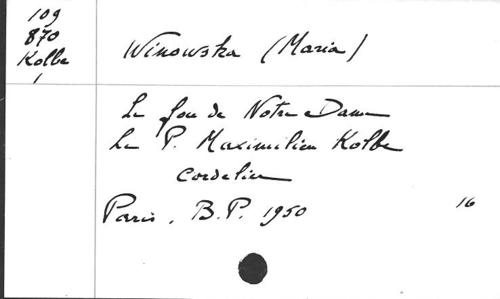 109
870
Kolbe
1
Winowska (Maria)
Le fou de Notre Dame
Le P. Maximilien Kolbe
Cordelier
Paris, B.P. 1950
16